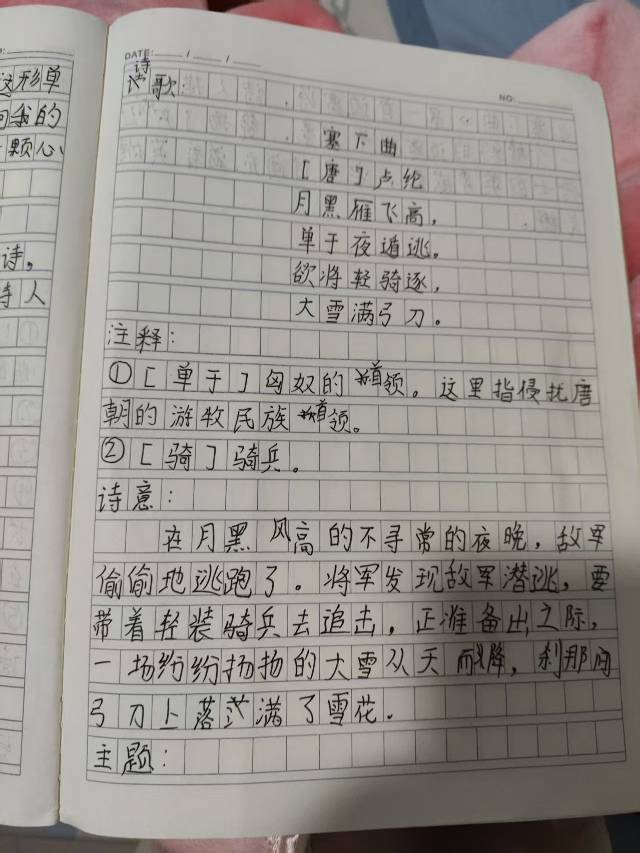 这形单
问我的
一颗心
诗，
诗人
DATE: / /
NO:
诗歌：
塞下曲
[唐]卢纶
月黑雁飞高，
单于夜遁逃。
欲将轻骑逐，
大雪满弓刀。
注释：
①[单于]匈奴的首领。这里指侵扰唐
朝的游牧民族首领。
②[骑]骑兵。
诗意：
在月黑风高的不寻常的夜晚，敌军
偷偷地逃跑了。将军发现敌军潜逃，要
带着轻装骑兵去追击，正准备出之际，
一场纷纷扬扬的大雪从天而降，刹那间
弓刀上落满了雪花。
主题：